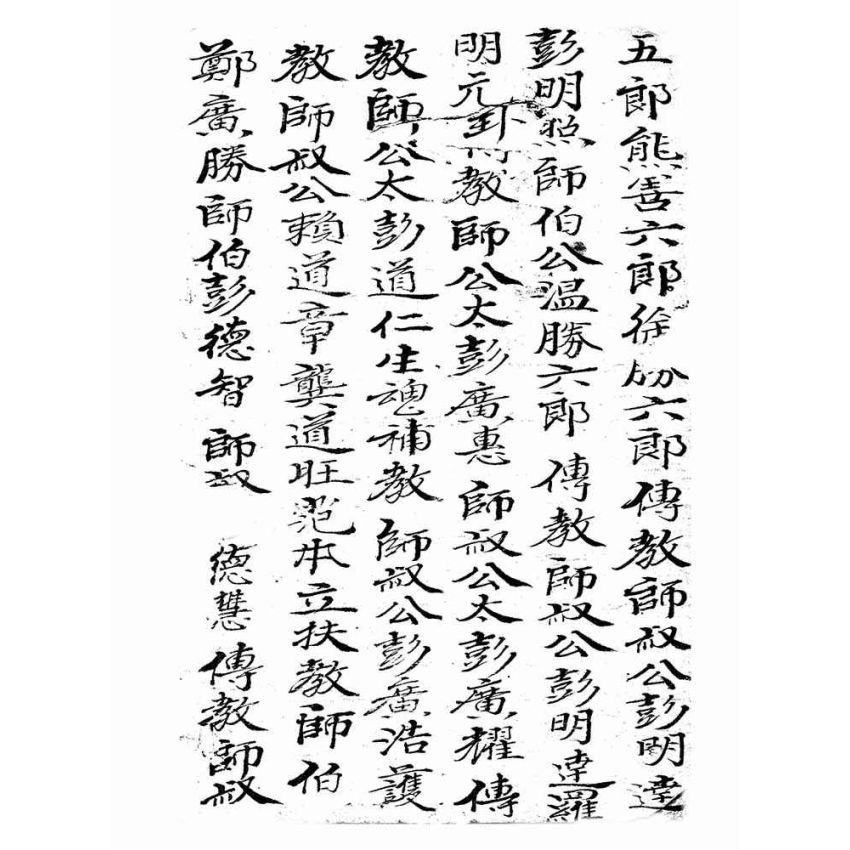 五郎熊善六郎徐劤六郎傳教師叔公彭明達
彭明照師伯公温勝六郎傳教師叔公彭明達羅
明元卦傳教師公太彭廣惠師叔公太彭廣耀傳
教師公太彭道仁生魂補教師叔公彭廣浩護
教師叔公賴道章龔道旺 本立扶教師伯
鄭廣勝師伯彭德智師叔 德慧傳教師叔